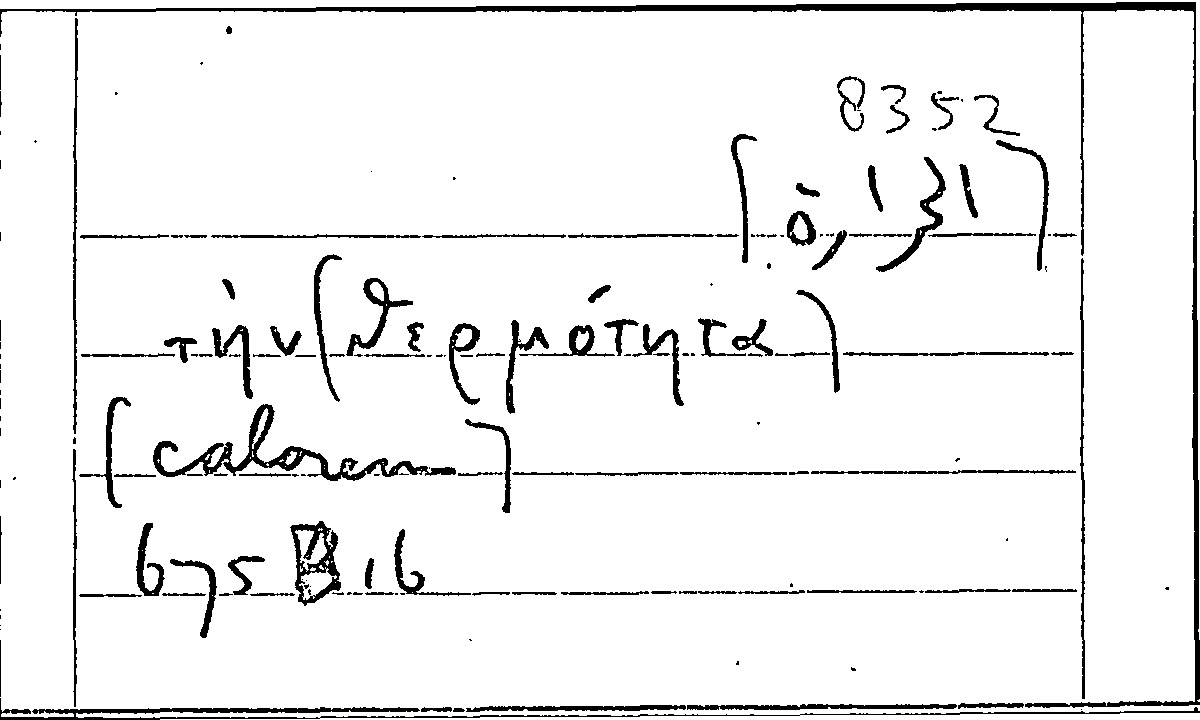 8352
[ὁ, 1, 31]
τὴν (θερμότητα)
[calorem]
675 B 16